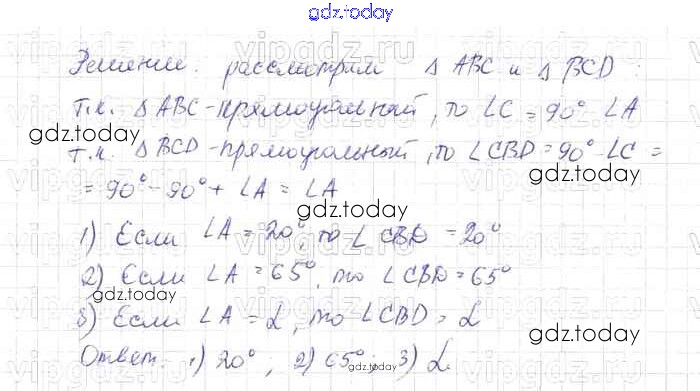 gdz.today
Решение: рассмотрим Δ ABC и Δ BCD :
т.к. Δ ABC - прямоугольный, то ∠C = 90° - ∠A
gdz.today
т.к. Δ BCD - прямоугольный, то ∠CBD = 90° - ∠C =
gdz.today
= 90° - 90° + ∠A = ∠A
gdz.today
1) Если ∠A = 20° то ∠CBD = 20°
2) Если ∠A = 65°, то ∠CBD = 65°
gdz.today
3) Если ∠A = α, то ∠CBD = α
gdz.today
Ответ. 1) 20° ; 2) 65° ; 3) α.
gdz.today
vipgdz.ru